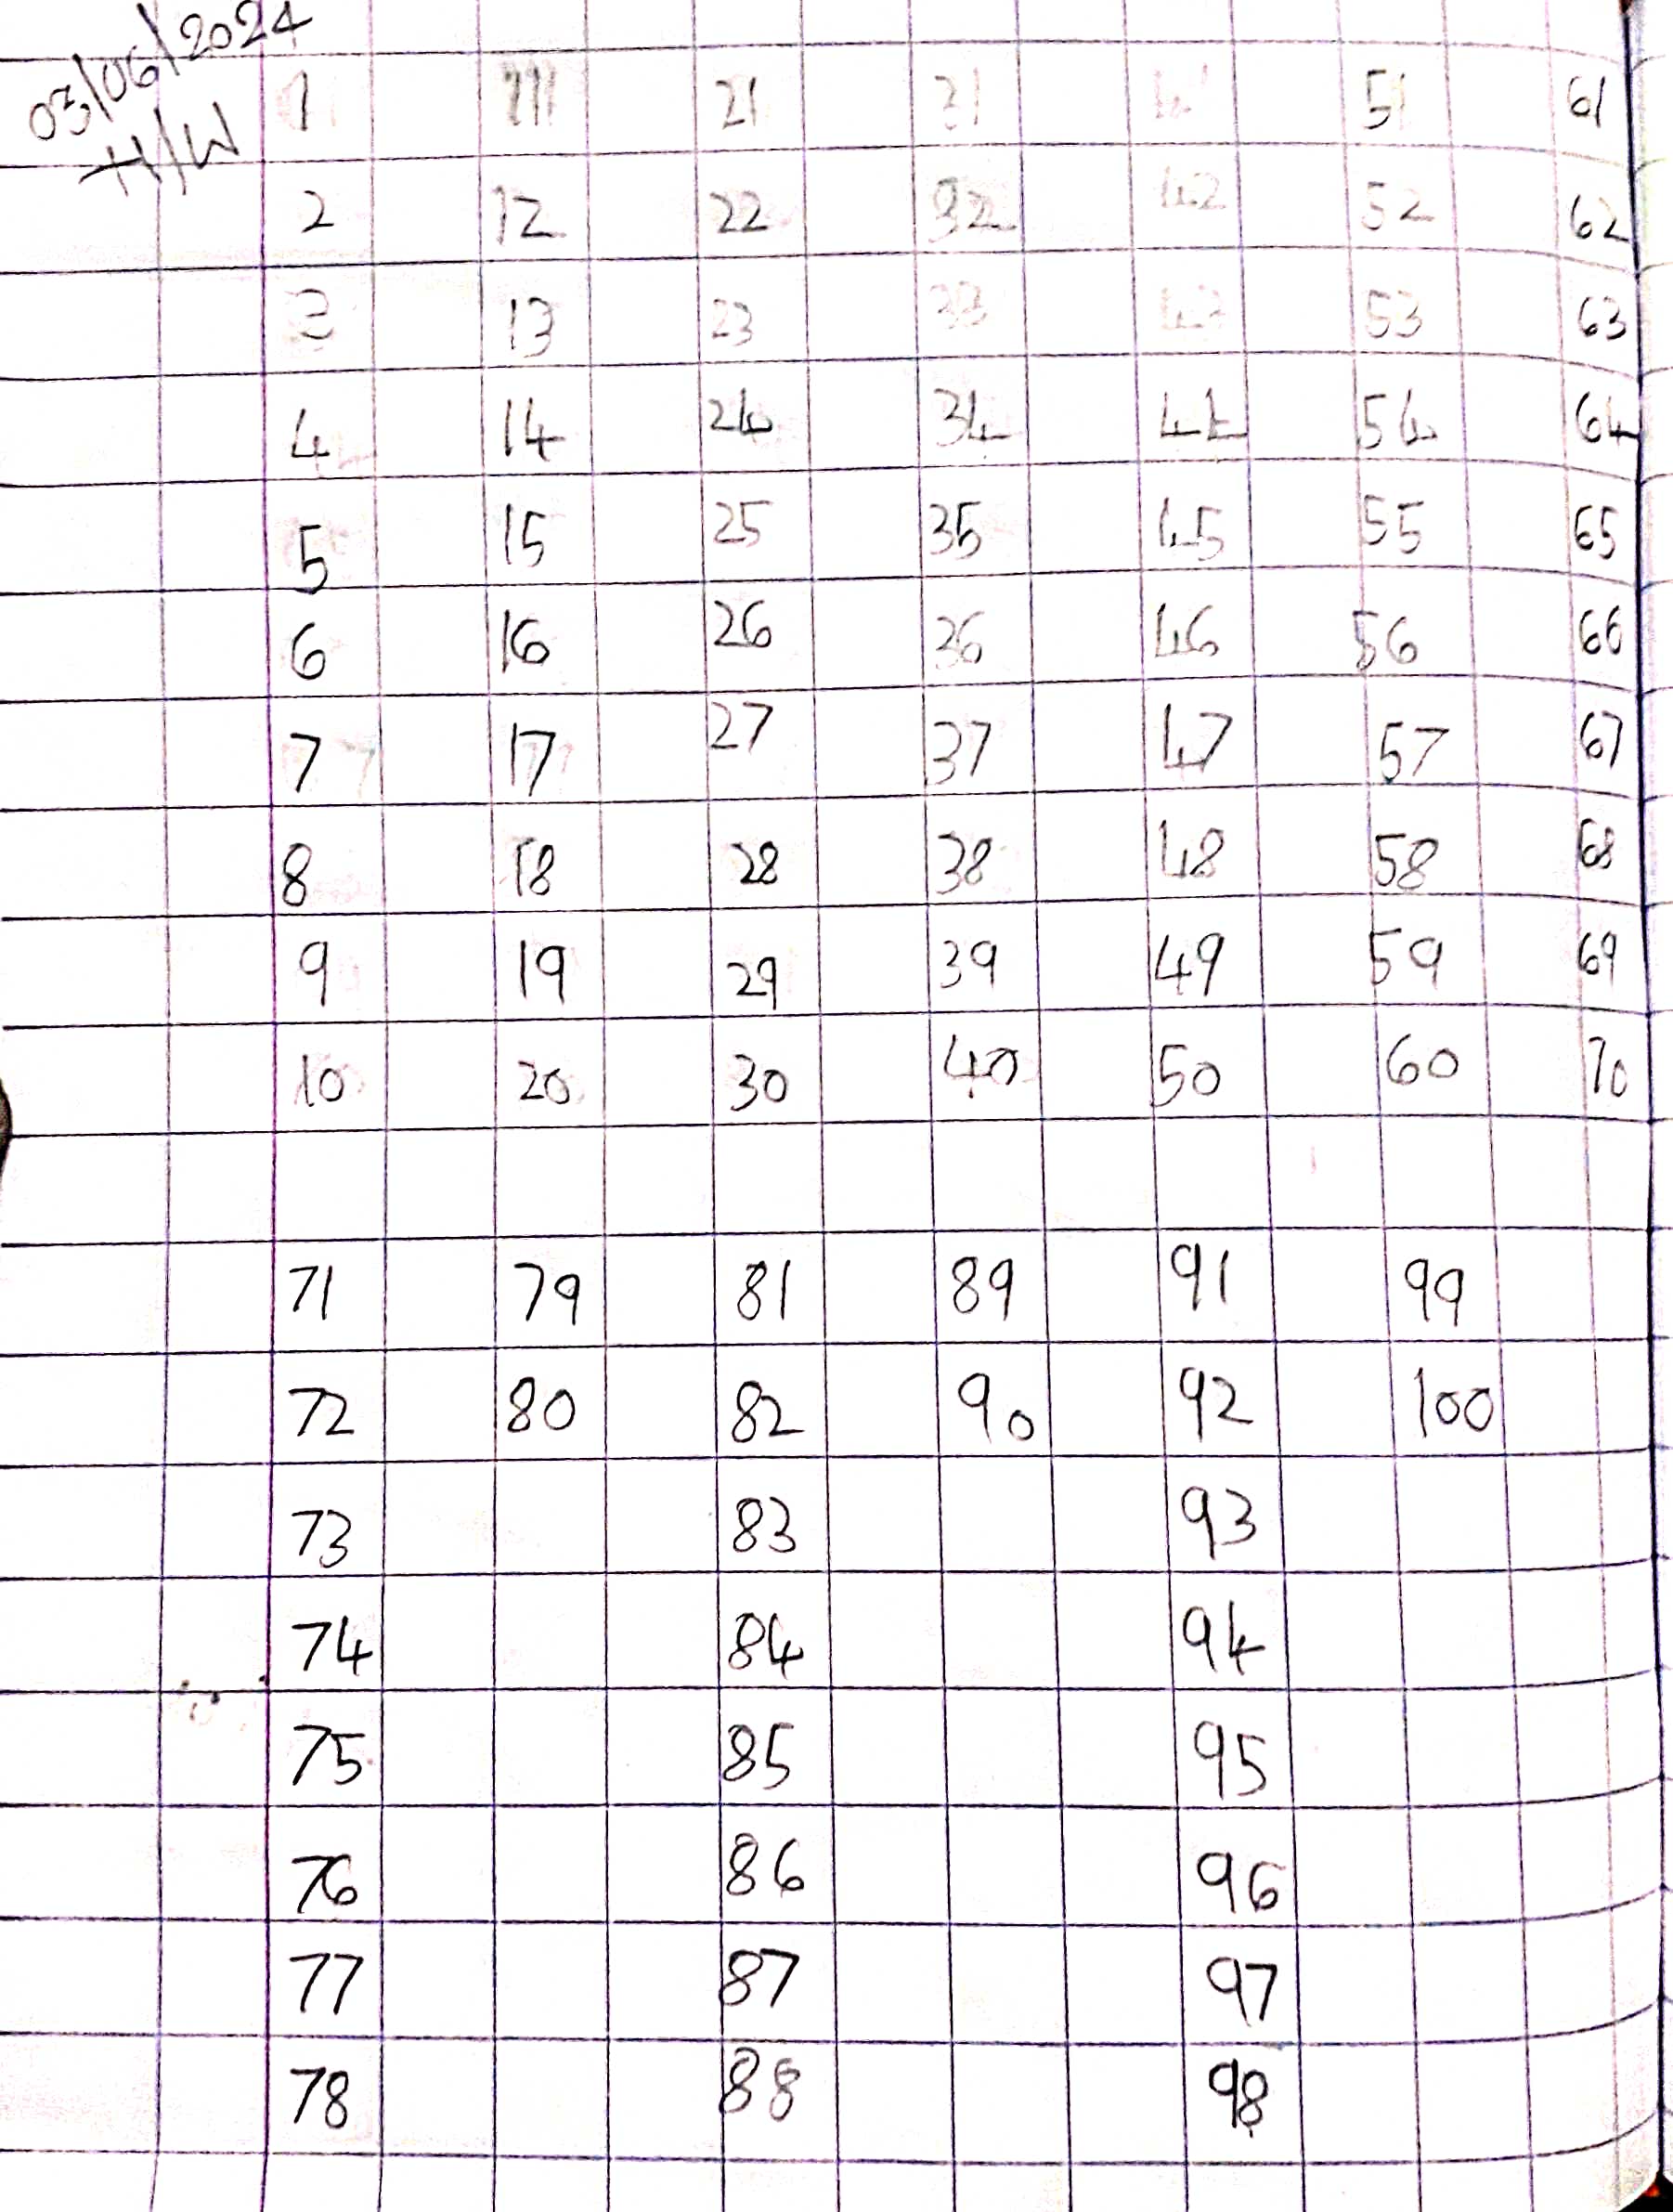 03/06/2024
H/W
1 11 21 31 41 51 61
2 12 22 32 42 52 62
3 13 23 33 43 53 63
4 14 24 34 44 54 64
5 15 25 35 45 55 65
6 16 26 36 46 56 66
7 17 27 37 47 57 67
8 18 28 38 48 58 68
9 19 29 39 49 59 69
10 20 30 40 50 60 70
71 79 81 89 91 99
72 80 82 90 92 100
73 83 93
74 84 94
75 85 95
76 86 96
77 87 97
78 88 98